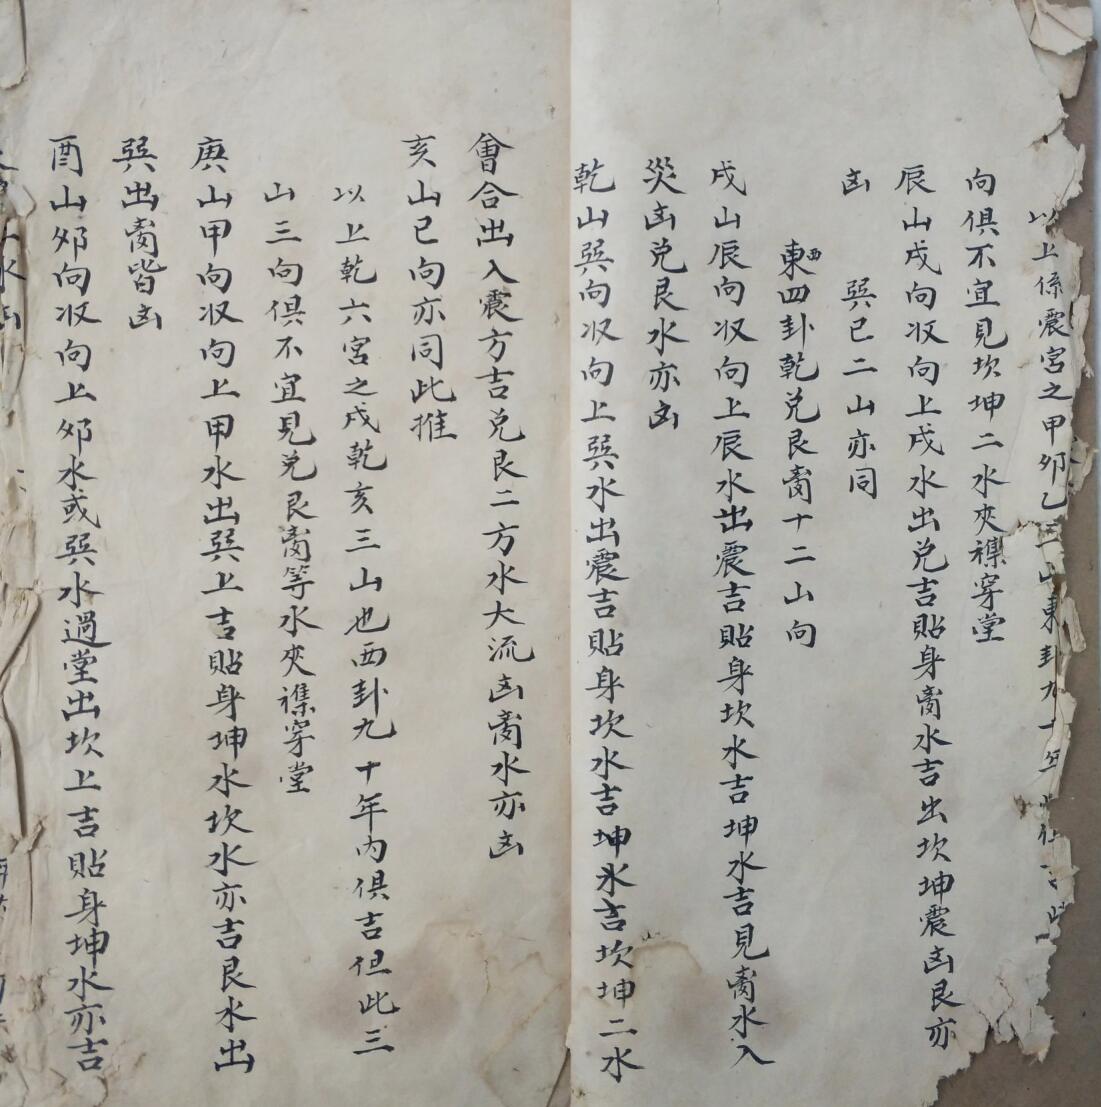 以上係震宮之甲夘乙三山東卦九十年
向俱不宜見坎坤二水夾襍穿堂
辰山戌向収向上戌水出兊吉貼身离水吉出坎坤震凶艮亦
凶 巽巳二山亦同
東西四卦乾兊艮离十二山向
戌山辰向収向上辰水出震吉貼身坎水吉坤水吉見离水入
災凶兊艮水亦凶
乾山巽向収向上巽水出震吉貼身坎水吉坤水吉坎坤二水
會合出入震方吉兊艮二方水大流凶离水亦凶
亥山巳向亦同此推
以上乾六宮之戌乾亥三山也西卦九十年內俱吉但此三
山三向俱不宜見兊艮离等水夾襍穿堂
庚山甲向収向上甲水出巽上吉貼身坤水坎水亦吉艮水出
巽出离皆凶
酉山夘向収向上夘水或巽水過堂出坎上吉貼身坤水亦吉